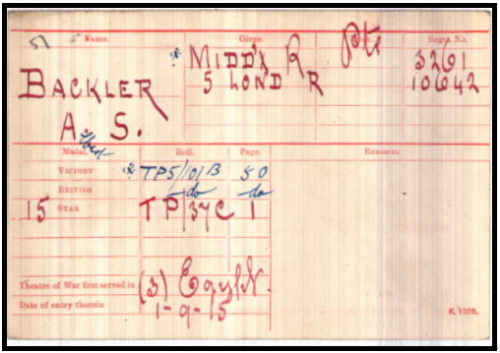 Name. Corps. Regtl. No.
BACKLER
A. S.
MIDD'X R Pte 3261
5 LOND R 10642
Medal. Roll. Page. Remarks.
VICTORY TP5/101B 50
BRITISH do do
15 STAR TP/37C 1
Theatre of War first served in (3) Egypt.
Date of entry therein 1-9-15
K. 1380.